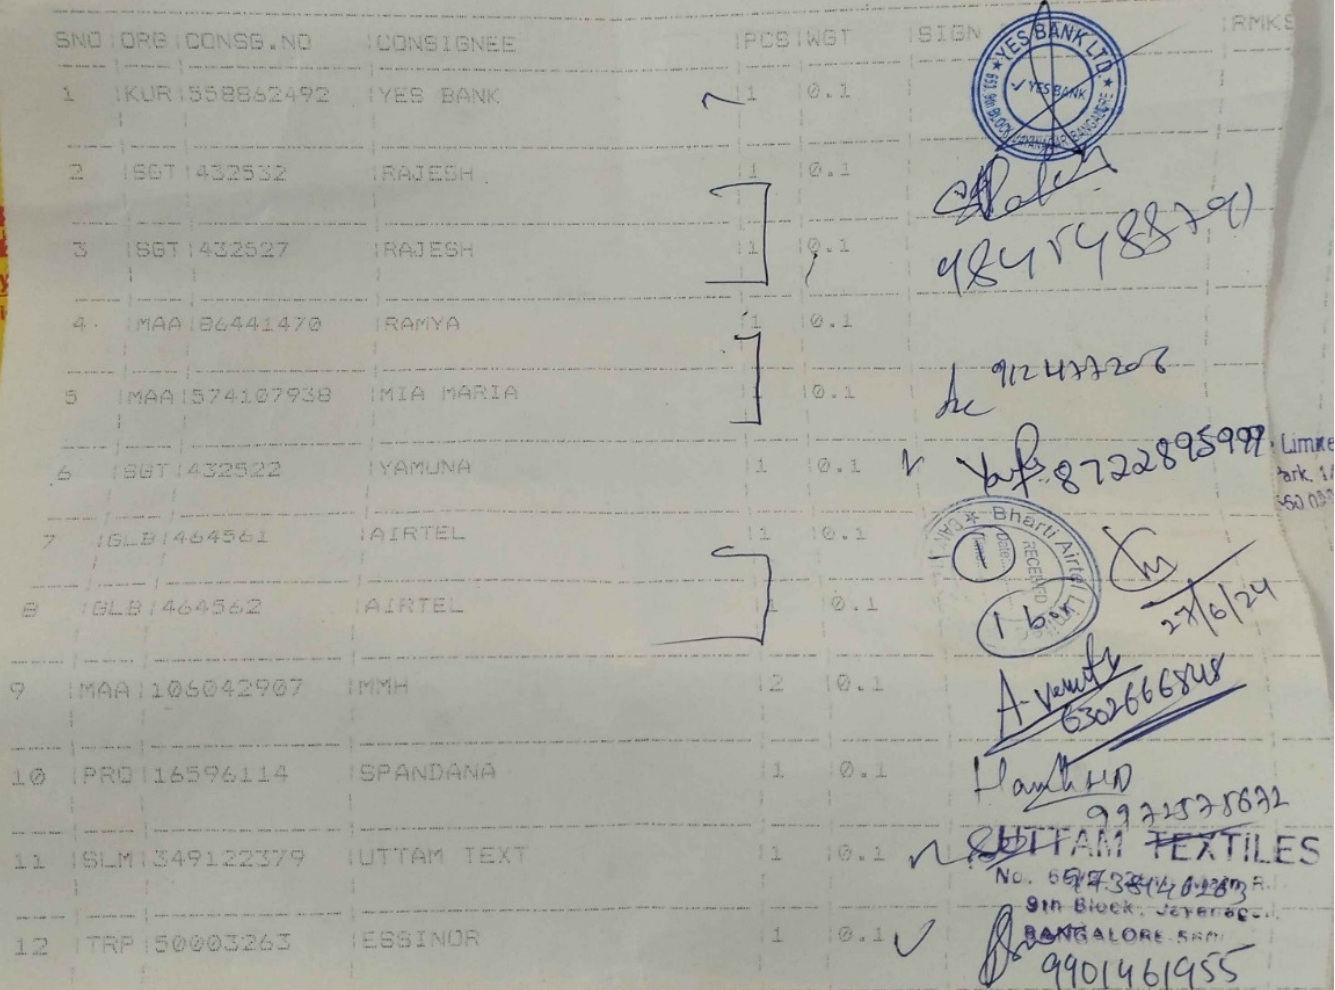 SNO ORG CONSG.NO CONSIGNEE PCS WGT SIGN RMKS
1 KUR 558862492 YES BANK 1 0.1
YES BANK LTD.
YES BANK
2 SGT 432532 RAJESH 1 0.1
3 SGT 432527 RAJESH 1 0.1
9845488791
4 MAA 86441470 RAMYA 1 0.1
5 MAA 574107938 MIA MARIA 1 0.1
912477206
6 SGT 432522 YAMUNA 1 0.1
8722895999
7 GLB 464561 AIRTEL 1 0.1
Bharti Airtel Limited
RECEIVED
Date
1
8 GLB 464562 AIRTEL 1 0.1
1 box
27/6/24
9 MAA 106042907 MMH 2 0.1
6302666848
10 PRO 16596114 SPANDANA 1 0.1
9972575672
11 SLM 349122379 UTTAM TEXT 1 0.1
UTTAM TEXTILES
No.
9th Block, Jayanagar
BANGALORE
12 TRP 50003263 ESSINOR 1 0.1
9901461955